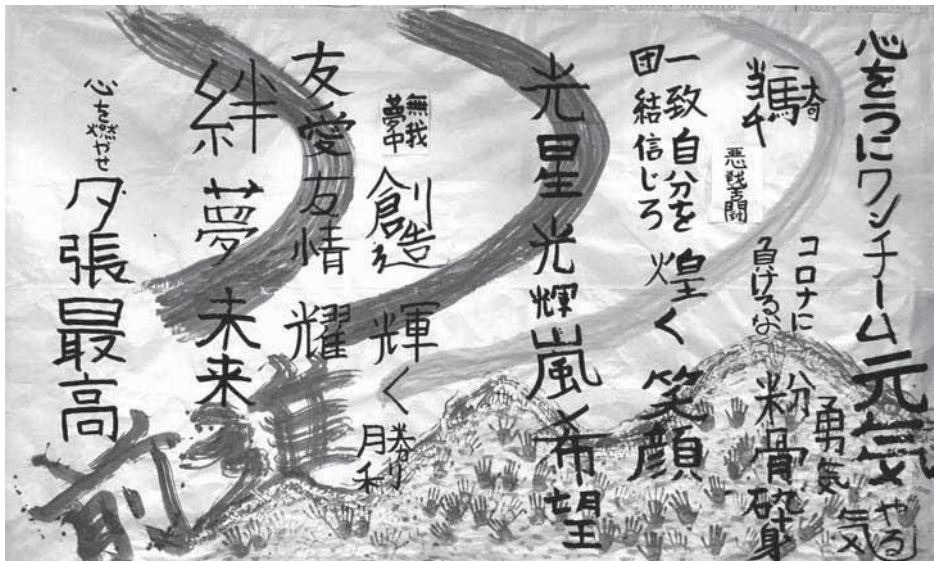 心を1つにワンチーム
元気
やる気
勇気
一騎
当千
悪戦苦闘
コロナに
負けるな
粉骨砕身
一致
団結
自分を
信じろ
煌く
笑顔
光
星
光輝
嵐
希望
無我
夢中
創造
輝く
勝利
友愛
友情
耀
絆
夢
未来
前進
心を燃やせ
夕張最高